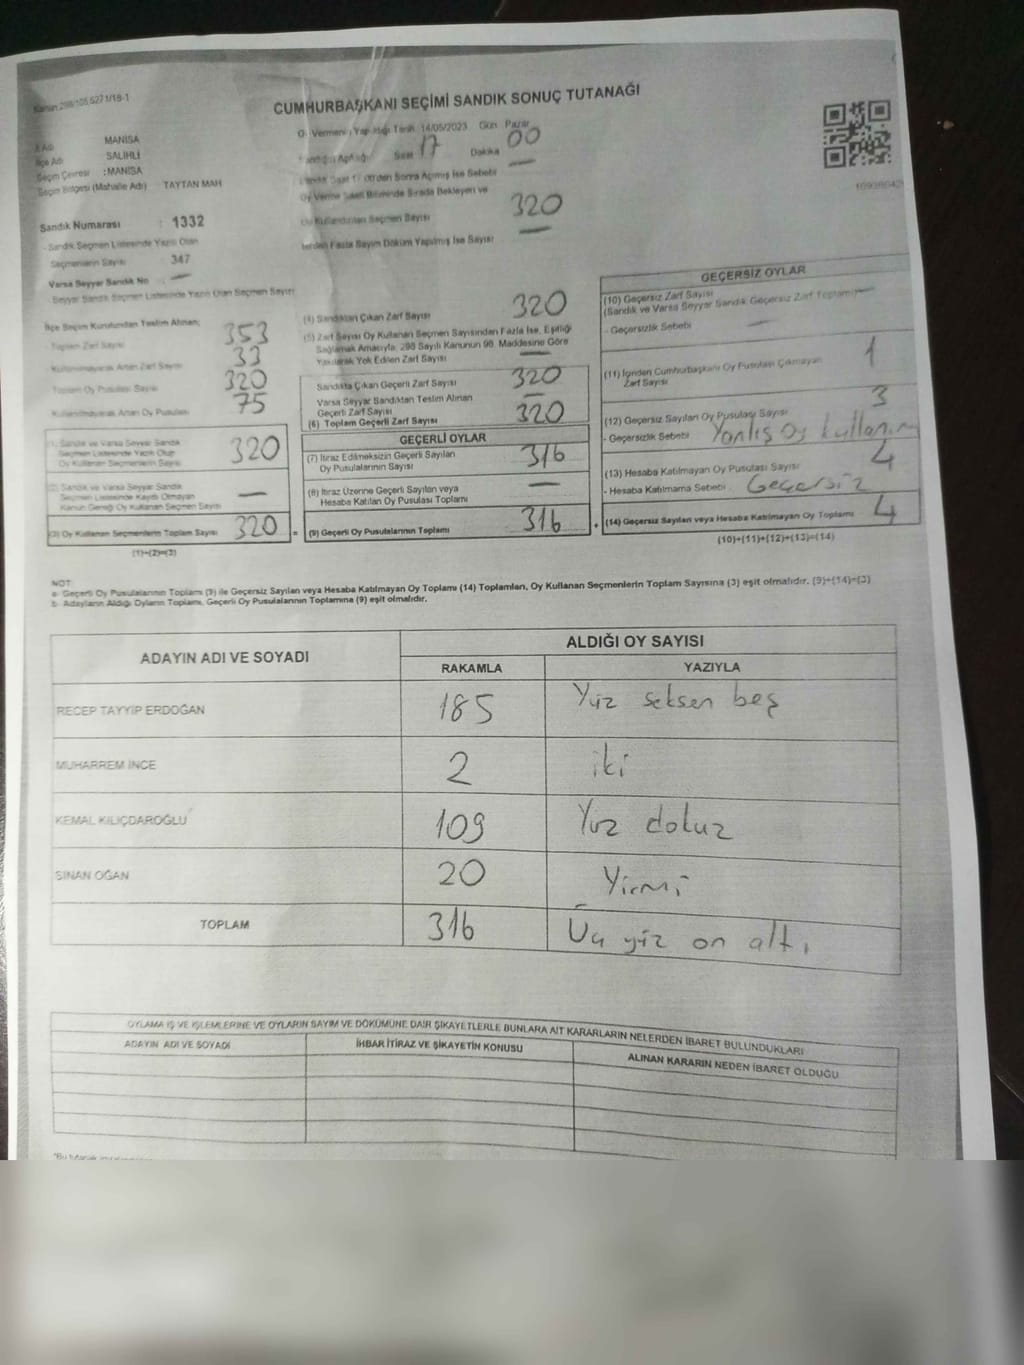 CUMHURBAŞKANI SEÇİMİ SANDIK SONUÇ TUTANAĞI
MANİSA
İlçe Adı SALİHLİ
Seçim Çevresi : MANİSA
Seçim Bölgesi (Mahalle Adı) TAYTAN MAH
Sandık Numarası : 1332
Sandık Seçmen Listesinde Yazılı Olan
Seçmenlerin Sayısı 347
Varsa Seyyar Sandık No —
Seyyar Sandık Seçmen Listesinde Yazılı Olan Seçmen Sayısı
Oy Vermenin Yapıldığı Tarih 14/05/2023 Gün Pazar
Sandığın Açıldığı Saat 17 Dakika 00
Sonra Açılmış İse Sebebi —
Oy Verme Saati Bitiminde Sırada Bekleyen ve
Oy Kullandırılan Seçmen Sayısı 320
Fazla Sayım Döküm Yapılmış İse Sayısı —
İlçe Seçim Kurulundan Teslim Alınan;
Toplam Zarf Sayısı 353
Kullanılmayarak Artan Zarf Sayısı 33
Toplam Oy Pusulası Sayısı 320
Kullanılmayarak Artan Oy Pusulası 75
(1) Sandık ve Varsa Seyyar Sandık
Seçmen Listesinde Yazılı Olup
Oy Kullanan Seçmenlerin Sayısı 320
(2) Sandık ve Varsa Seyyar Sandık
Seçmen Listesinde Kayıtlı Olmayan
Kanun Gereği Oy Kullanan Seçmen Sayısı —
(3) Oy Kullanan Seçmenlerin Toplam Sayısı 320 =
(1)+(2)=(3)
(4) Sandıktan Çıkan Zarf Sayısı 320
(5) Zarf Sayısı Oy Kullanan Seçmen Sayısından Fazla İse, Eşitliği
Sağlamak Amacıyla, 298 Sayılı Kanunun 98. Maddesine Göre
Yakılarak Yok Edilen Zarf Sayısı —
Sandıkta Çıkan Geçerli Zarf Sayısı 320
Varsa Seyyar Sandıktan Teslim Alınan
Geçerli Zarf Sayısı —
(6) Toplam Geçerli Zarf Sayısı 320
GEÇERLİ OYLAR
(7) İtiraz Edilmeksizin Geçerli Sayılan
Oy Pusulalarının Sayısı 316
(8) İtiraz Üzerine Geçerli Sayılan veya
Hesaba Katılan Oy Pusulası Toplamı —
(9) Geçerli Oy Pusulalarının Toplamı 316 +
GEÇERSİZ OYLAR
(10) Geçersiz Zarf Sayısı
(Sandık ve Varsa Seyyar Sandık Geçersiz Zarf Toplamı) —
- Geçersizlik Sebebi —
(11) İçinden Cumhurbaşkanı Oy Pusulası Çıkmayan
Zarf Sayısı 1
(12) Geçersiz Sayılan Oy Pusulası Sayısı 3
- Geçersizlik Sebebi Yanlış oy kullanım
(13) Hesaba Katılmayan Oy Pusulası Sayısı 4
- Hesaba Katılmama Sebebi Geçersiz
(14) Geçersiz Sayılan veya Hesaba Katılmayan Oy Toplamı 4
(10)+(11)+(12)+(13)=(14)
NOT:
a- Geçerli Oy Pusulalarının Toplamı (9) ile Geçersiz Sayılan veya Hesaba Katılmayan Oy Toplamı (14) Toplamları, Oy Kullanan Seçmenlerin Toplam Sayısına (3) eşit olmalıdır. (9)+(14)=(3)
b- Adayların Aldığı Oyların Toplamı, Geçerli Oy Pusulalarının Toplamına (9) eşit olmalıdır.
ADAYIN ADI VE SOYADI ALDIĞI OY SAYISI
RAKAMLA YAZIYLA
RECEP TAYYİP ERDOĞAN 185 Yüz seksen beş
MUHARREM İNCE 2 iki
KEMAL KILIÇDAROĞLU 109 Yüz dokuz
SİNAN OĞAN 20 Yirmi
TOPLAM 316 Üç yüz on altı
OYLAMA İŞ VE İŞLEMLERİNE VE OYLARIN SAYIM VE DÖKÜMÜNE DAİR ŞİKAYETLERLE BUNLARA AİT KARARLARIN NELERDEN İBARET BULUNDUKLARI
ADAYIN ADI VE SOYADI İHBAR İTİRAZ VE ŞİKAYETİN KONUSU ALINAN KARARIN NEDEN İBARET OLDUĞU